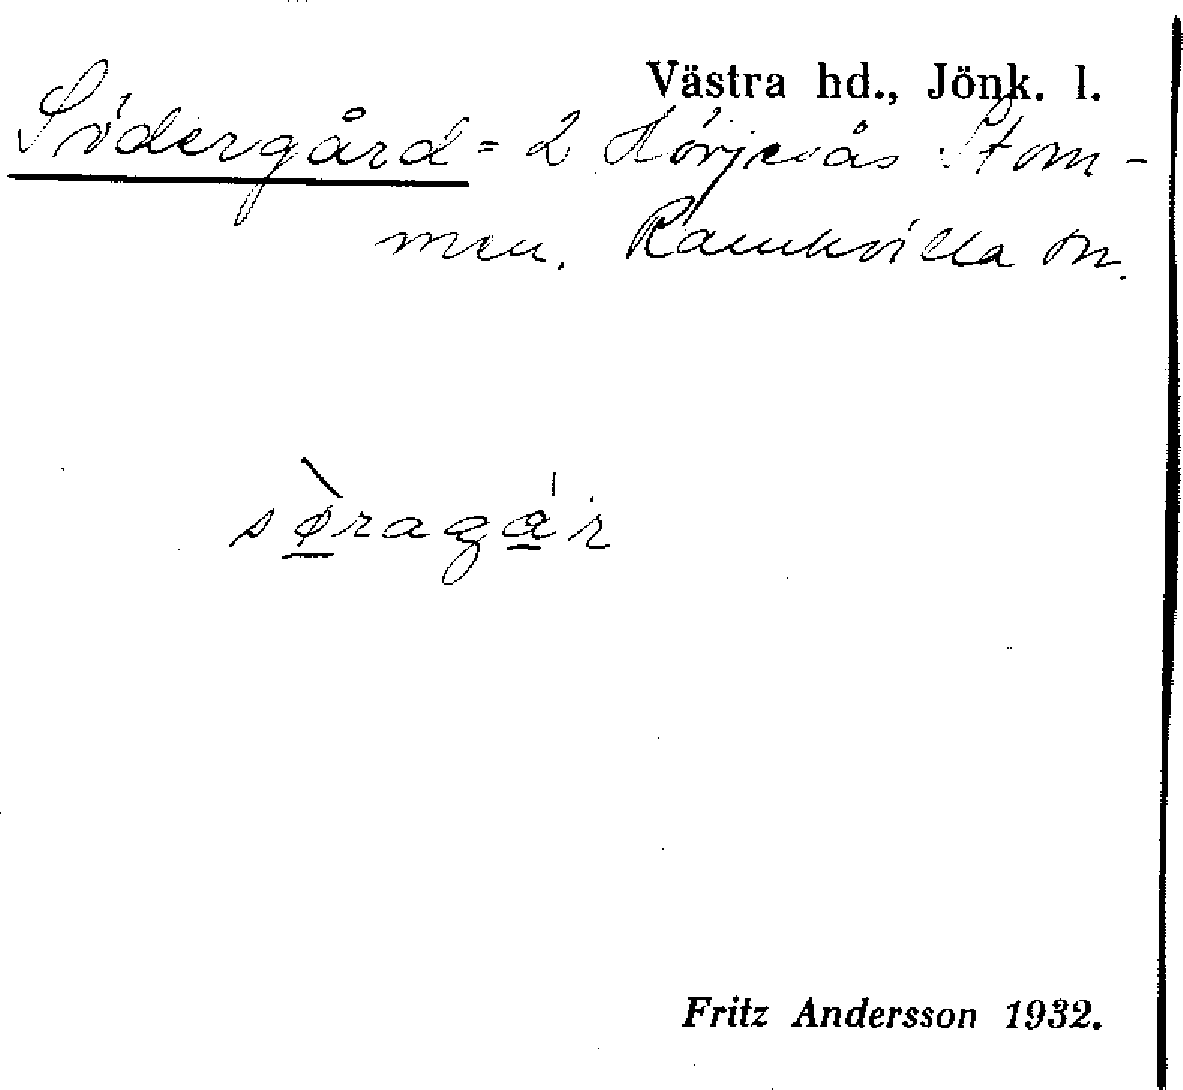 Västra hd., Jönk. l.
Södergård = 2 Hörjeås Stom-
men. Ramkvilla sn.
sø̀ragár
Fritz Andersson 1932.